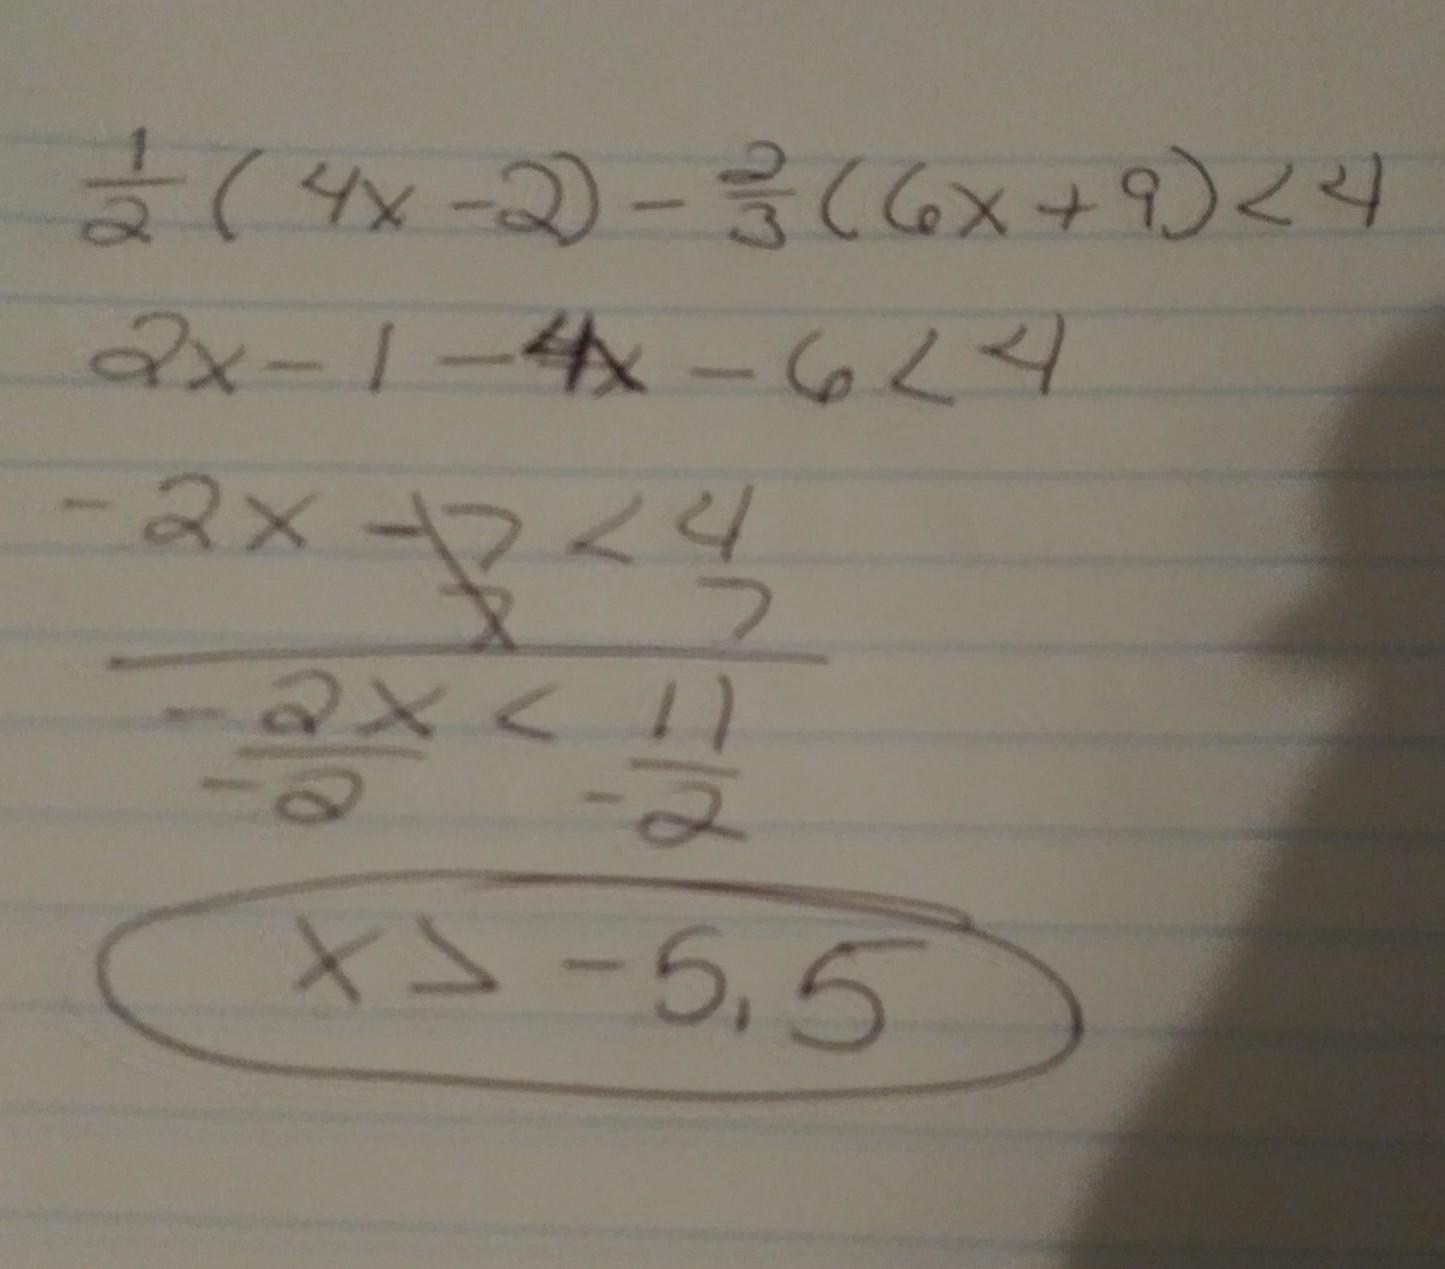 1/2 (4x - 2) - 2/3 (6x + 9) < 4
2x - 1 - 4x - 6 < 4
-2x - 7 < 4
7 7
-2x < 11
-2 -2
x > -5.5